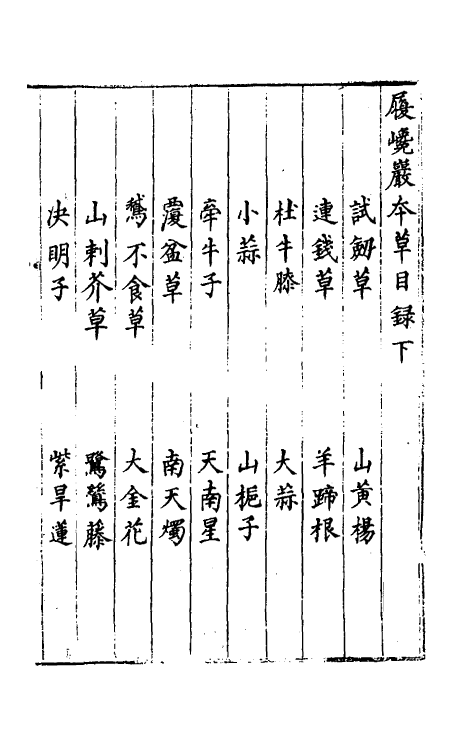 履巉巖本草目錄下
試劒草 山黃楊
連錢草 羊蹄根
杜牛膝 大蒜
小蒜 山梔子
牽牛子 天南星
覆盆草 南天燭
鵞不食草 大金花
山刺芥草 鷺鶿藤
决明子 紫旱蓮